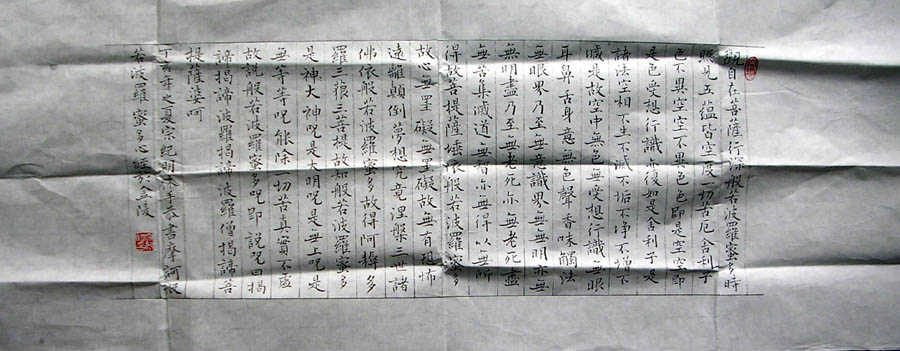 觀自在菩薩行深般若波羅蜜多時
照見五蘊皆空度一切苦厄舍利子
色不異空空不異色色即是空空即
是色受想行識亦復如是舍利子是
諸法空相不生不滅不垢不淨不增不
減是故空中無色無受想行識無眼
耳鼻舌身意無色聲香味觸法
無眼界乃至無意識界無無明亦無
無明盡乃至無老死亦無老死盡
無苦集滅道無智亦無得以無所
得故菩提薩埵依般若波羅蜜多
故心無罣礙無罣礙故無有恐怖
遠離顛倒夢想究竟涅槃三世諸
佛依般若波羅蜜多故得阿耨多
羅三藐三菩提故知般若波羅蜜多
是神大神呪是大明呪是無上呪是
無等等呪能除一切苦真實不虛
故說般若波羅蜜多呪即說呪曰揭
諦揭諦波羅揭諦波羅僧揭諦菩
提薩婆呵
丁亥年之夏宗紀明沐手恭書摩訶般
若波羅蜜多心經於金陵